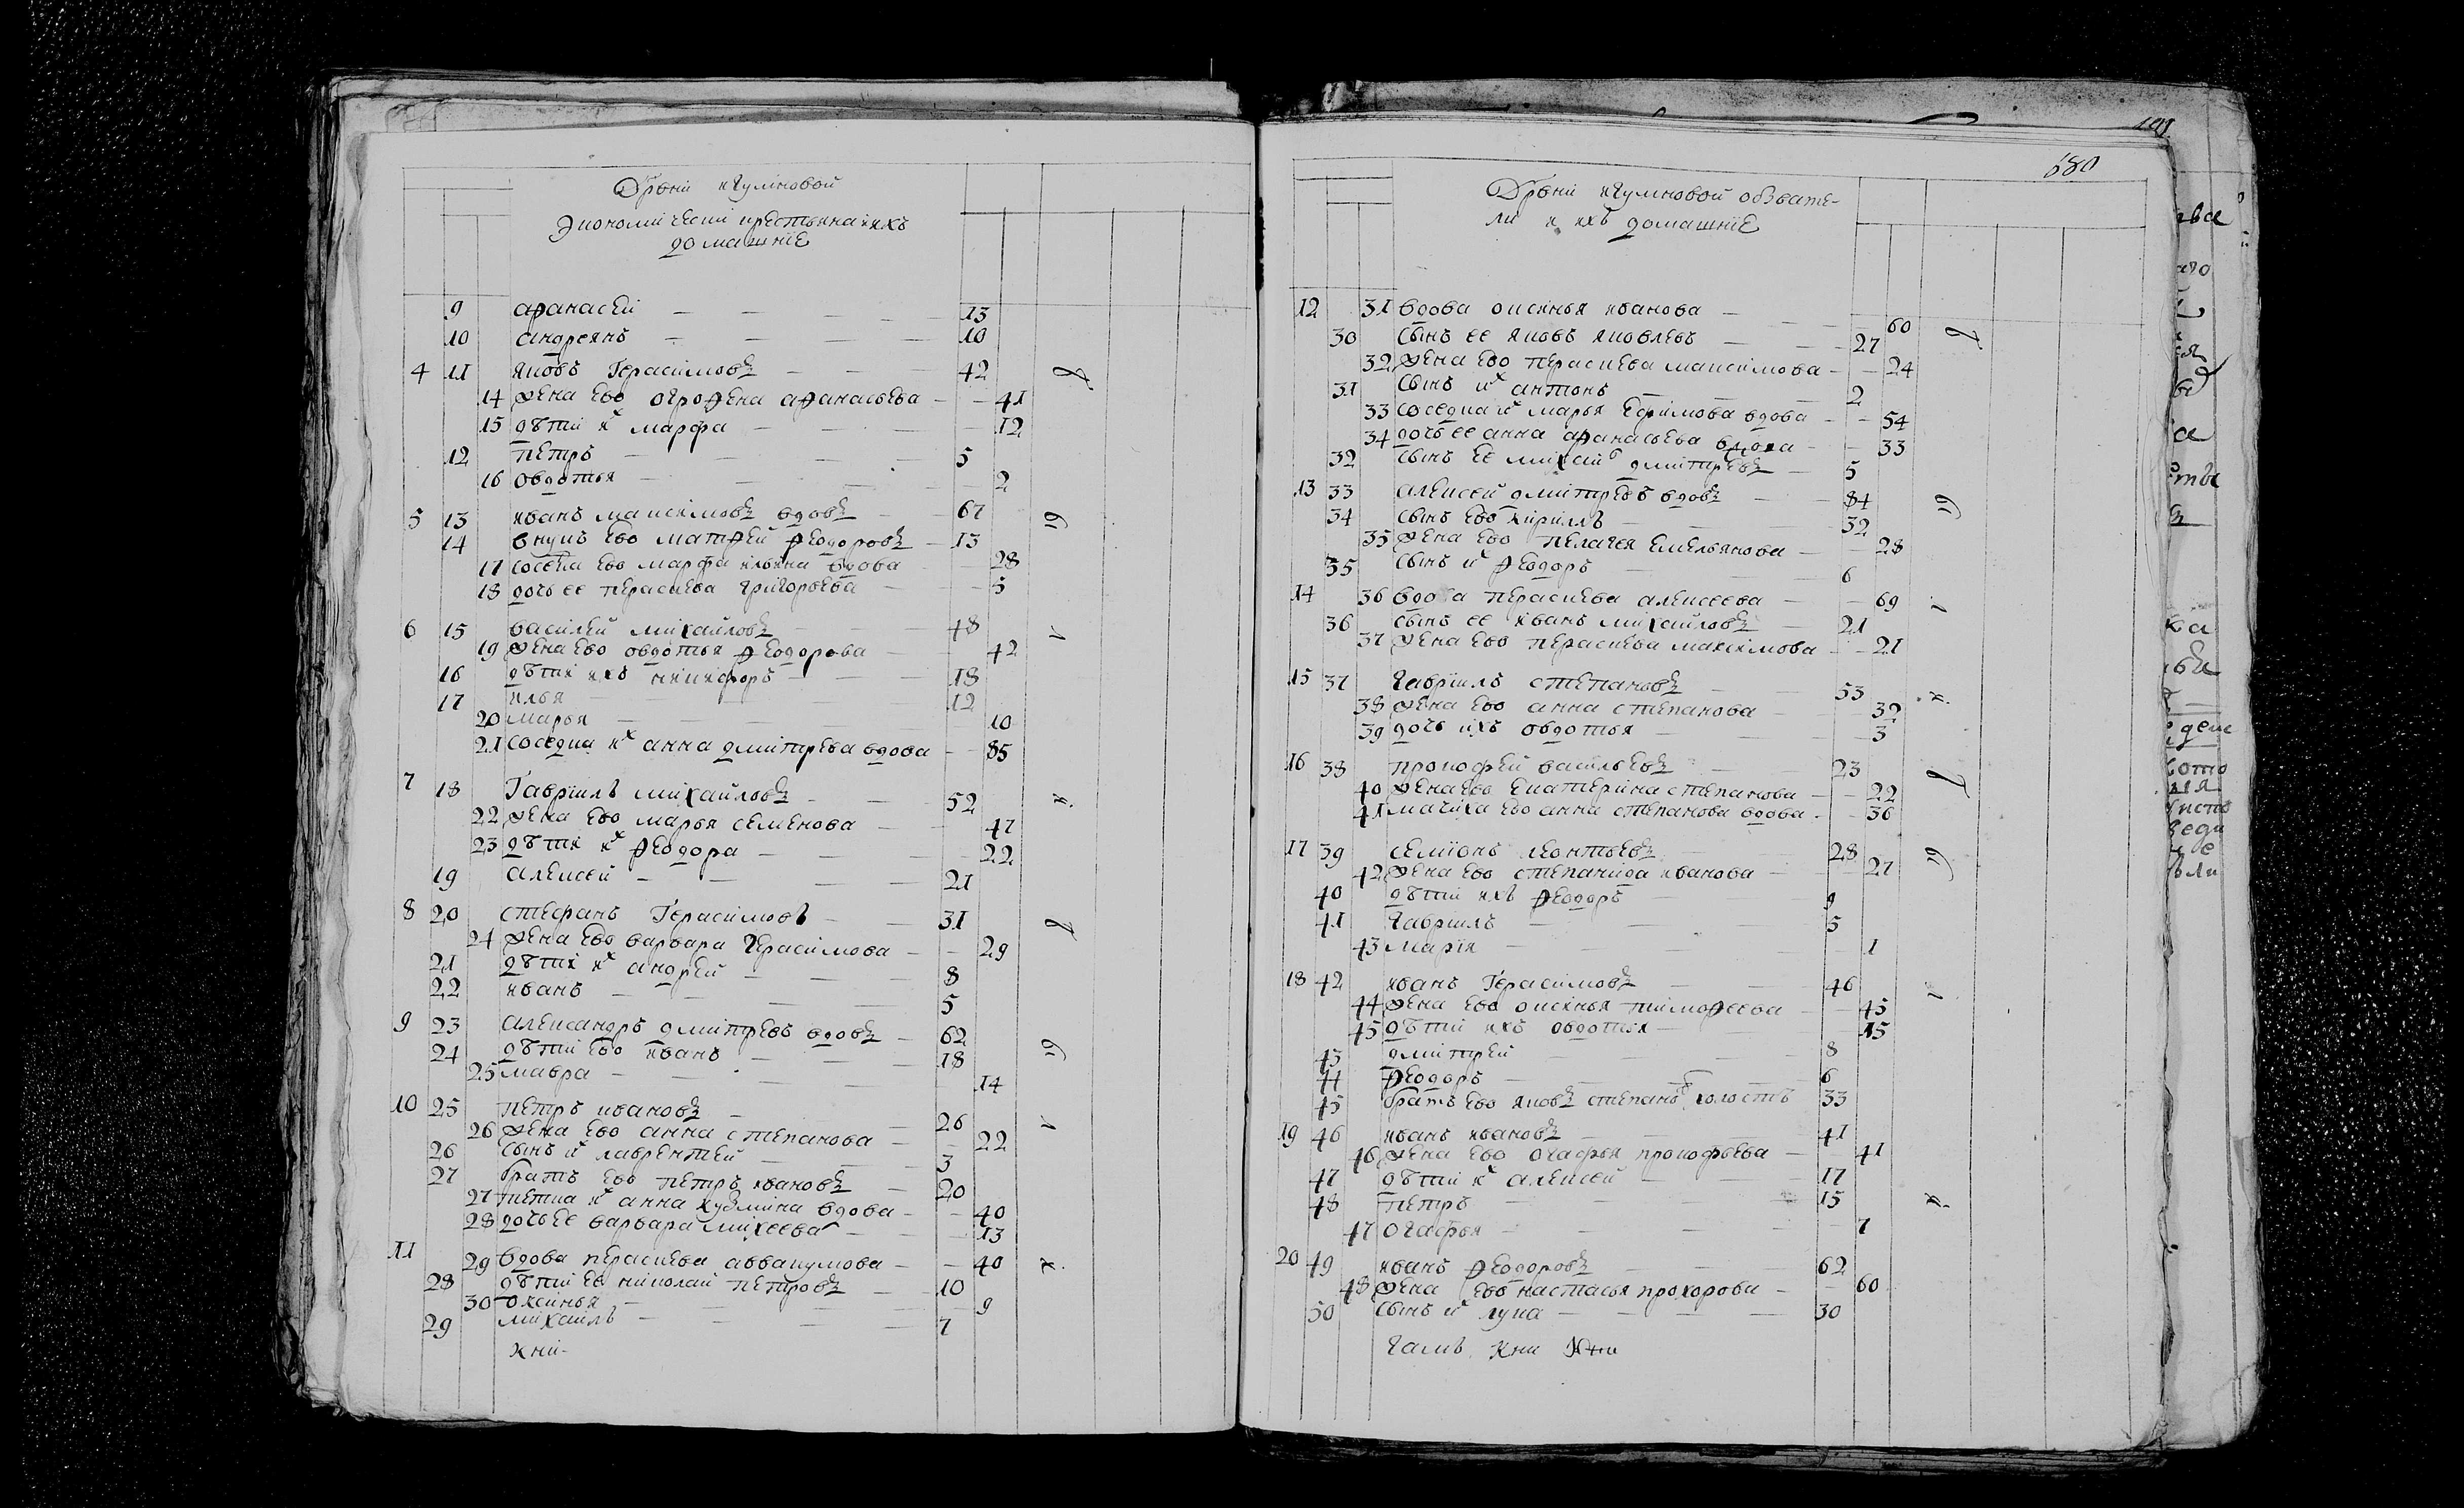 Дрвни игумновой
Экономически крестьяна и ихъ
домашние
9 афанасеи 13
10 андреянъ 10
4 11 яковъ Герасимовъ 42
14 жена ево огрофена афанасьева 41
15 дѣти их марфа 12
12 петръ 5
16 овдотья 2
5 13 иванъ максимовъ вдовъ 67
14 внукъ ево матфей феодоровъ 13
17 соседка ево марфа ильина вдова 28
18 дочь ее пераскева григорьева 5
6 15 василей михайловъ 48
19 жена ево овдотья феодорова 42
16 дѣти ихъ никифоръ 18
17 илья 12
20 марья 10
21 соседка их анна дмитрева вдова 85
7 18 Гаврiилъ михайловъ 52
22 жена ево марья семенова 47
23 дѣти их феодора 22
19 алексей 21
8 20 стефанъ Герасимовъ 31
24 жена ево варвара герасимова 29
21 дѣти их андрей 8
22 иванъ 5
9 23 александръ дмитревъ вдовъ 62
24 дѣти ево иванъ 18
25 мавра 14
10 25 петръ ивановъ 26
26 жена ево анна степанова 22
26 сынъ их лаврентей 3
27 братъ ево петръ ивановъ 20
27 тетка их анна кузмина вдова 40
28 дочь ее варвара михеева 13
11 29 вдова пераскева аввакумова 40
28 дѣти ее николай петровъ 10
30 оксинья 9
29 михаилъ 7
кни-
680
Дрвни игумновой обывате-
ли и ихъ домашнiе
12 31 вдова оксинья иванова 60
30 сынъ ее яковъ яковлевъ 27
32 жена ево пераскева максимова 24
31 сынъ их антонъ 2
33 соседка их марья ефимова вдова 54
34 дочь ее анна афанасьева вдова 33
32 сынъ ее михаил дмитревъ 5
13 33 алексей дмитревъ вдовъ 84
34 сынъ ево кирилъ 32
35 жена ево пелагея емельянова 28
35 сынъ их феодоръ 6
14 36 вдова пераскева алексеева 69
36 сынъ ее иванъ михайловъ 21
37 жена ево пераскева максимова 21
15 37 гаврiилъ степановъ 53
38 жена ево анна степанова 32
39 дочь ихъ овдотья 3
16 38 прокофей васильевъ 23
40 жена ево екатерина степанова 22
41 мачиха ево анна степанова вдова 36
17 39 семiонъ леонтьевъ 28
42 жена ево степанида иванова 27
40 дѣти ихъ феодоръ 9
41 гаврiилъ 5
43 марiя 1
18 42 иванъ Герасимовъ 46
44 жена ево оксинья тимофеева 45
45 дѣти ихъ овдотья 15
43 дмитрей 8
44 феодоръ 6
45 братъ ево яковъ степанов холостъ 33
19 46 иванъ ивановъ 41
46 жена ево огафья прокофьева 41
47 дѣти их алексей 17
48 петръ 15
47 огафья 7
20 49 иванъ феодоровъ 62
48 жена ево настасья прохорова 60
50 сынъ их лука 30
гамъ кни